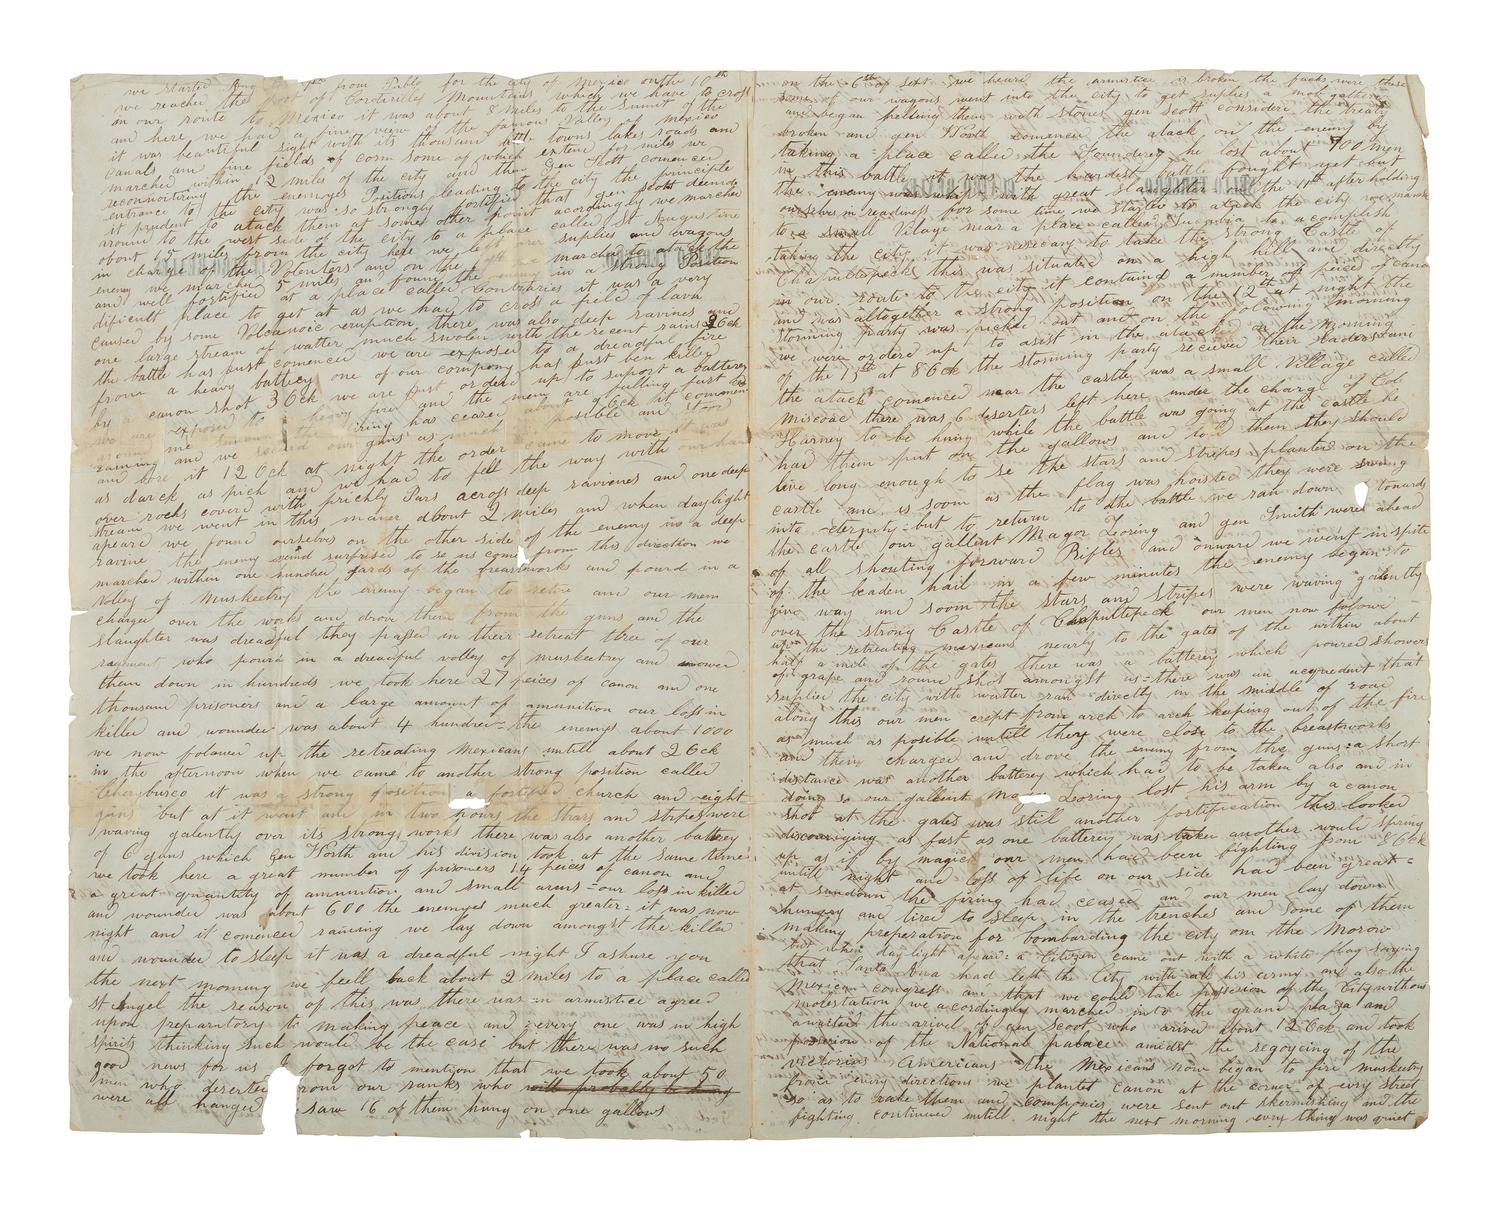 we started from Pueblo for the city of Mexico on the 10th
we reached the foot of Cordirelles Mountains which we have to cross
on our route to Mexico it was about 8 miles to the sumet of the
and here we had a fine view of the famous Valley of mexico
it was beautiful sight with its thousand towns lakes roads and
canals and fine fields of corn some of which extend for miles we
marched within 12 miles of the city and then Gen Scott comenced
reconnoitering the enemyes Positions leading to the city the principle
entrance to the city was so strongly fortified that gen scott deemed
it prudent to atack them at some other point acordingly we marched
around to the west side of the city to a place called St Augustine
about miles from the city here we left our supplies and wagons
in charge of the Volenters and on the marched to atack the
enemy we marched 5 miles and found the enemy in a strong Position
and well fortified at a place called Contraries it was a very
dificult place to get at as we had to cross a field of lava
caused by some Volcanoic eruption there was also deep ravines and
one large stream of watter much swolen with the recent rains 2 Ock
the battle has just comenced we are exposed to a dreadful fire
from a heavy battery one of our company has just ben killed
by a canon shot 3 Ock we are just orderd up to suport a battery
we are exposed to heavy fire and the men are falling fast
around me the firing has ceased about 9 Ock it comenced
raining and we secured our guns as much as posible and stood
and bore it 12 Ock at night the order came to move it was
as darck as pich and we had to fell the way with our hands
over rocks coverd with prichly Pars across deep ravienes and one deep
stream we went in this maner about 2 miles and when daylight
apeard we found ourselves on the other side of the enemy in a deep
ravine the enemy surprised to se us come from this direction we
marched within one hundred yards of the breastworks and pourd in a
Volley of Muskeetry the enemy began to retire and our men
charged over the works and drove them from the guns and the
slaughter was dreadful they passed in their retreat three of our
regiment who pourd in a dreadful volley of muskeetry and mowed
them down in hundreds we took here 27 peices of canon and one
thousand prisoners and a large amount of amunition our loss in
killed and wounded was about 4 hundred = the enemys about 1000
we now folowed up the retreating Mexicans untill about 2 Ock
in the afternoon when we came to another strong position called
Cherybusco it was a strong position a fortified church and eight
guns but at it want and in two hours the stars and stripes were
waving galently over its strong works there was also another battrey
of 6 guns which Gen Worth and his division took at the same time
we took here a great number of prisoners 14 peices of canon and
a great quantity of amunition and small arms = our loss in killed
and wounded was about 600 the enemyes much greater = it was now
night and it comenced raining we lay down amongst the killed
and wounded to sleep it was a dreadful night I ashure you
the next morning we fell back about 2 miles to a place called
St Angel the reason of this was there was an armistice agreed
upon preparatory to making peace and every one was in high
spirits thinking such would be the case but there was no such
good news for us I forgot to mention that we took about 50
men who deserted from our ranks who will probably be hung
were all hanged I saw 16 of them hung on one gallows
on the 6th of sept we heard the armistice is broken the facks were these
some of our wagons went into the city to get suplies a mob gathered
and began pelting them with stones gen Scott considerd the treaty
broken and gen Worth comenced the atack on the enemy by
taking a place called the Founderey he lost about 700 men
in this battle it was the hardest battle fought yet but
the enemy was whipd with great slaughter on the 11th after holding
ourselves in readiness for some time we started to atack the city we marched
to a small Vilage near a place called to acomplish
taking the city it was nesecary to take the strong Castle of
Chapultepeck this was situated on a high hill and directly
in our route to the city it contained a number of peices of canon
and was altogether a strong position on the 12th at night the
storming party was pickd out and on the folowing morning
we were orderd up to asist in the atack on the Morning
of the 13th at 8 Ock the storming party recieved their orders and
the atack comenced near the castle was a small Village called
Miscoac there was 6 deserters left here under the charge of Col
Harney to be hung while the battle was going at the castle he
had them put on the gallows and told them they should
live long enough to se the stars and stripes planted on the
castle and as soom as the flag was hoisted they were swung
into eternity = but to return to the battle we ran down towards
the castle our gallent Magor Loring and gen Smith were ahead
of all shouting forward Rifles and onward we went in spite
of the leaden hail in a few minutes the enemy began to
give way and soom the stars and stripes were waving galently
over the strong Castle of Chapultepeck our men now folowed
up the retreating mexicans nearly to the gates of the within about
half a mile of the gates there was a batterey which poured showers
of grape and round shot amongst us = there was an acquedent that
suplied the city with watter ran directly in the middle of road
along this our men crept from arch to arch keeping out of the fire
as much as posible untill they were close to the breastworks
and then charged and drove the enemy from the guns = a short
distance was another batterey which had to be taken also and in
doing so our gallent Magor Loring lost his arm by a canon
shot at the gates was still another fortification this looked
discouriging as fast as one batterey was taken another would spring
up as if by magic our men had been fighting from 8 Ock
untill night and loss of life on our side had been great =
at sundown the firing had ceased and our men lay down
hungry and tired to sleep in the trenches and some of them
making preperation for bombarding the city om the Morow
but when day light apeard a Citizen came out with a white flag saying
that Santa Ana had left the City with all his army and also the
Mexicn congress and that we could take possesion of the City without
molestation we acordingly marched into the grand plaza and
awaited the arivel of gen Scott who arived about 12 Ock and took
possesion of the National palace amidst the regoycing of the
victorious Americans the Mexicans now began to fire muskeetry
from every directions we planted canon at the corner of evry street
so as to rake them and companies were sent out skermishing and the
fighting continued untill night the next morning evry thing was quiet